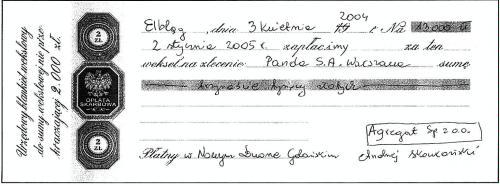 Urzędowy blankiet wekslowy
do sumy wekslowej nie prze-
kraczającej 2.000 zł.
2
ZŁ
OPŁATA
SKARBOWA
2
ZŁ
2004
Elbląg, dnia 3 kwietnia 19 r. Na 13 000 zł
2 stycznia 2005 r. zapłacimy za ten
weksel na zlecenie Panda S.A. Warszawa sumę
trzynaście tysięcy złotych
Agregat Sp z o.o.
Płatny w Nowym Dworze Gdańskim Andrzej